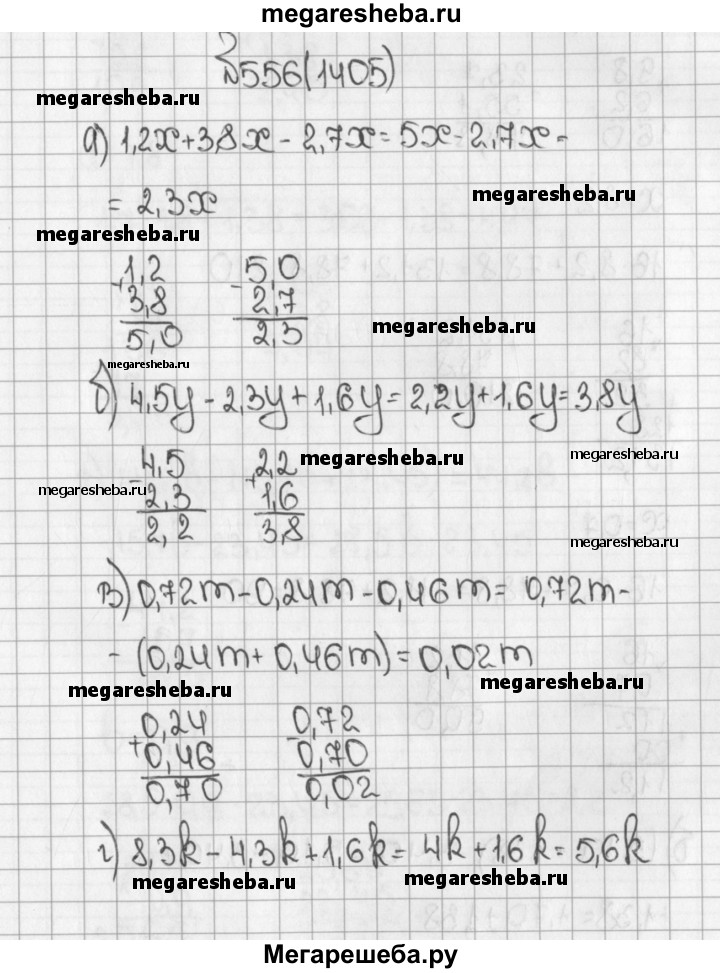 megaresheba.ru
№556(1405)
megaresheba.ru
а) 1,2x+3,8x - 2,7x = 5x - 2,7x =
= 2,3x
megaresheba.ru
megaresheba.ru
1,2 5,0
+ -
3,8 2,7
5,0 2,3
megaresheba.ru
megaresheba.ru
б) 4,5y - 2,3y + 1,6y = 2,2y + 1,6y = 3,8y
4,5 2,2
megaresheba.ru
megaresheba.ru
- +
2,3 1,6
megaresheba.ru
2,2 3,8
megaresheba.ru
в) 0,72m - 0,24m - 0,46m = 0,72m -
- (0,24m + 0,46m) = 0,02m
megaresheba.ru
megaresheba.ru
0,24 0,72
+ -
0,46 0,70
0,70 0,02
г) 8,3k - 4,3k + 1,6k = 4k + 1,6k = 5,6k
megaresheba.ru
megaresheba.ru
Мегарешеба.ру